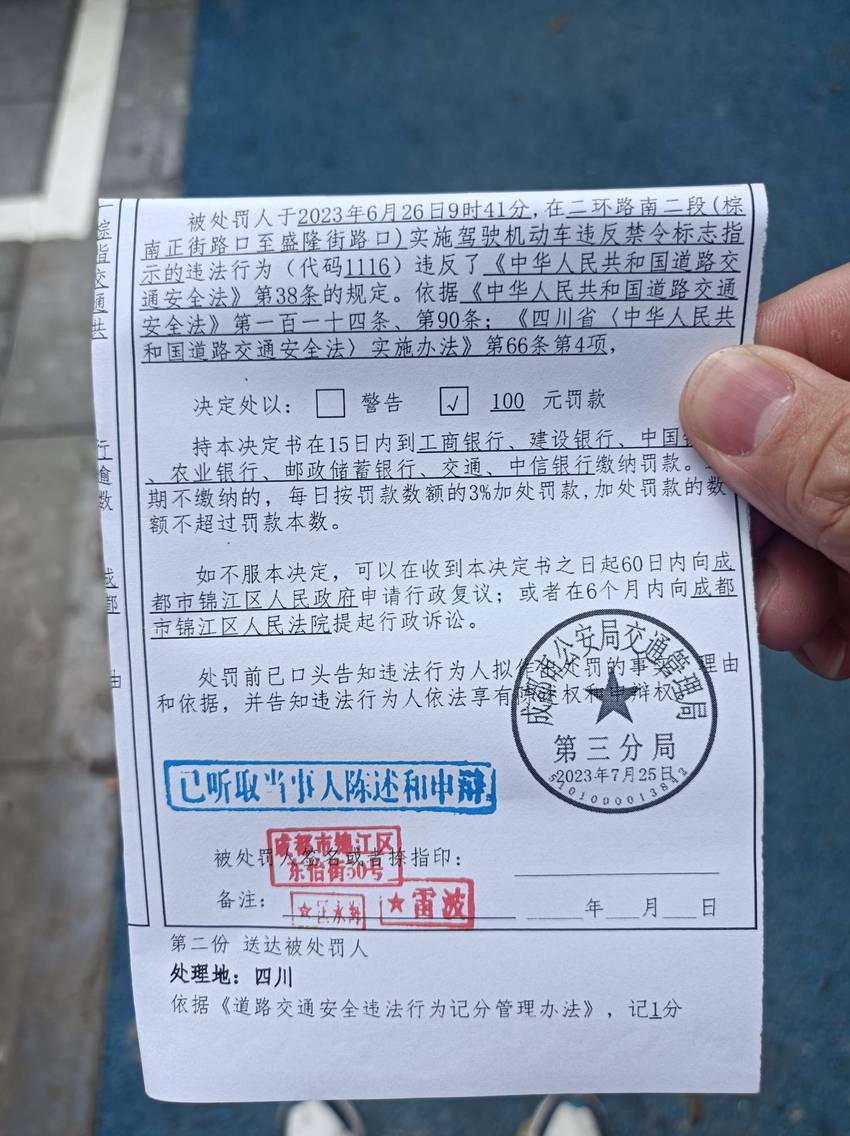 被处罚人于2023年6月26日9时41分,在二环路南二段(棕
南正街路口至盛隆街路口)实施驾驶机动车违反禁令标志指
示的违法行为（代码1116）违反了《中华人民共和国道路交
通安全法》第38条的规定。依据《中华人民共和国道路交通
安全法》第一百一十四条、第90条；《四川省〈中华人民共
和国道路交通安全法〉实施办法》第66条第4项，
决定处以： 警告 √ 100 元罚款
持本决定书在15日内到工商银行、建设银行、中国
、农业银行、邮政储蓄银行、交通、中信银行缴纳罚款。
期不缴纳的，每日按罚款数额的3%加处罚款,加处罚款的数
额不超过罚款本数。
如不服本决定，可以在收到本决定书之日起60日内向成
都市锦江区人民政府申请行政复议；或者在6个月内向成都
市锦江区人民法院提起行政诉讼。
处罚前已口头告知违法行为人拟作出处罚的事实、理由
和依据，并告知违法行为人依法享有陈述权和申辩权。
成都市公安局交通管理局
第三分局
2023年7月25日
5101000013842
已听取当事人陈述和申辩
被处罚人签名或者捺指印：
成都市锦江区
东怡街50号
备注： 年 月 日
★雷波
第二份 送达被处罚人
处理地：四川
依据《道路交通安全违法行为记分管理办法》，记1分